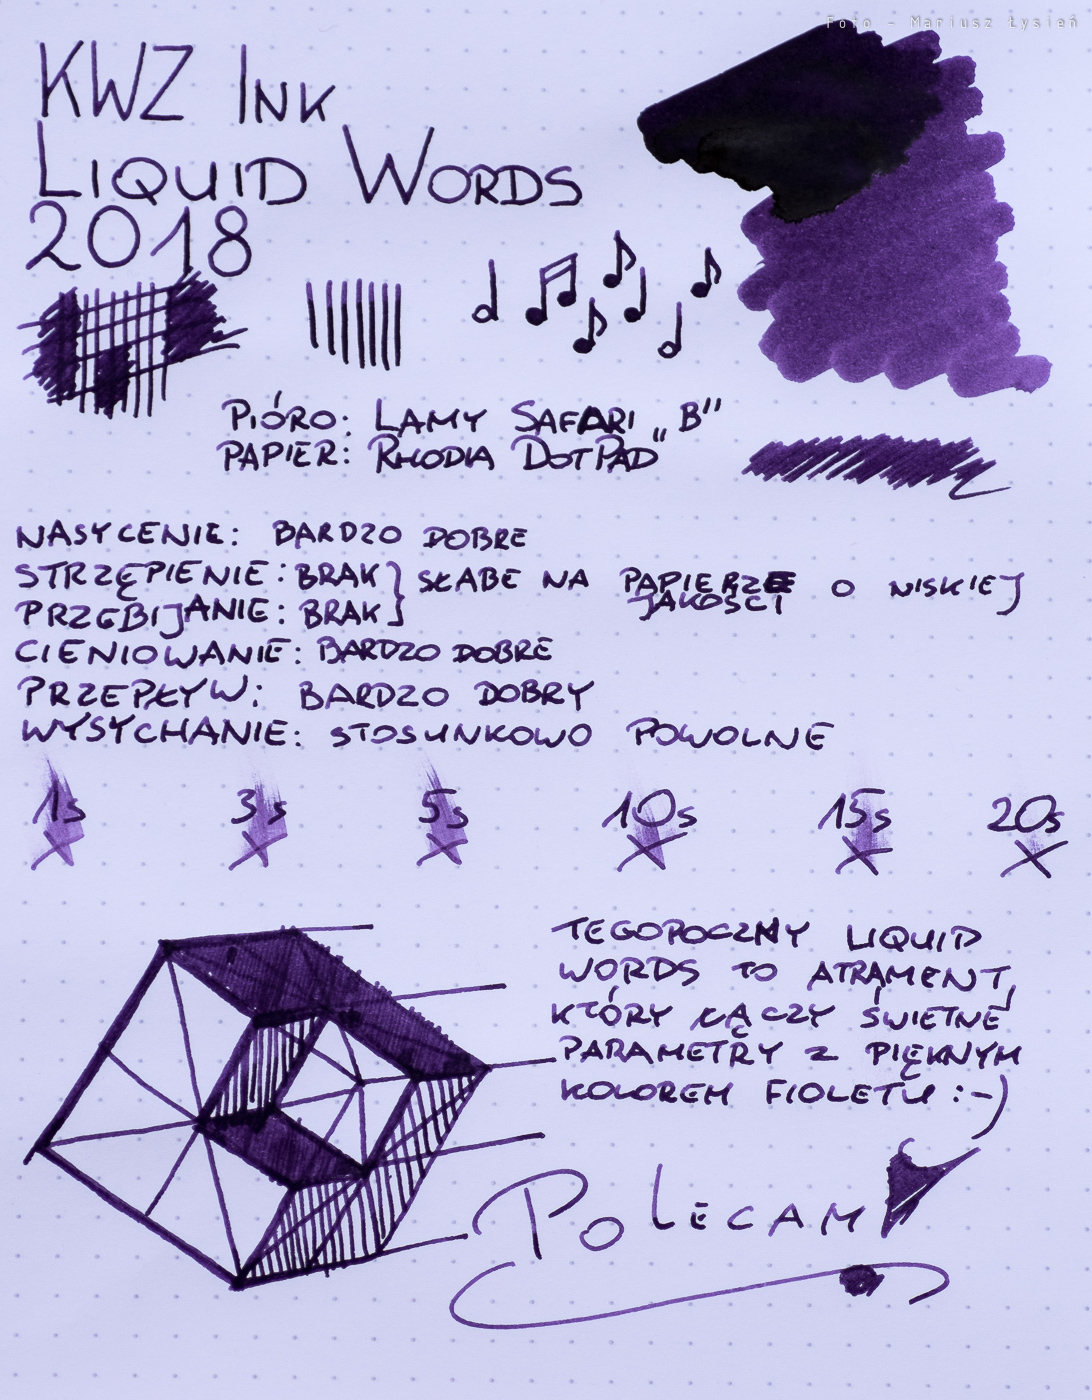 Foto - Mariusz Łysień
KWZ INK
LIQUID WORDS
2018
PIÓRO: LAMY SAFARI „B”
PAPIER: RHODIA DOTPAD
NASYCENIE: BARDZO DOBRE
STRZĘPIENIE: BRAK } SŁABE NA PAPIERZE O NISKIEJ
PRZEBIJANIE: BRAK JAKOŚCI
CIENIOWANIE: BARDZO DOBRE
PRZEPŁYW: BARDZO DOBRY
WYSYCHANIE: STOSUNKOWO POWOLNE
1s 3s 5s 10s 15s 20s
TEGOROCZNY LIQUID
WORDS TO ATRAMENT,
KTÓRY ŁĄCZY ŚWIETNE
PARAMETRY Z PIĘKNYM
KOLOREM FIOLETU :-)
POLECAM!